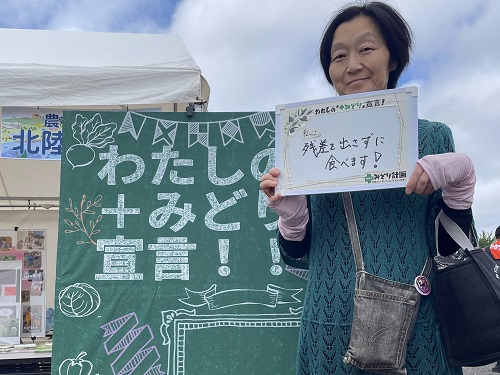 農
北陸
わたしの
＋みどり
宣言！！
わたしの"＋みどり"宣言！
私は、
残差を出さずに
食べます！
みどり計画